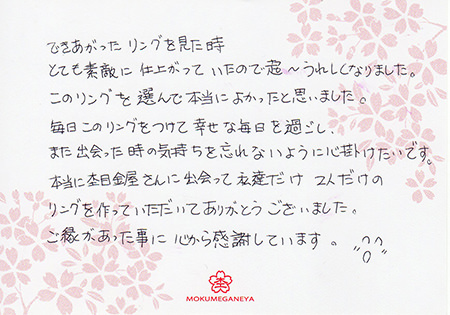 できあがった リングを見た時
とても素敵に 仕上がって いたので超〜うれしくなりました。
このリングを 選んで本当に よかったと思いました。
毎日このリングをつけて 幸せな毎日を過ごし、
また出会った時の気持ちを忘れないように心掛けたいです。
本当に杢目金屋さんに出会って 私達だけ 2人だけの
リングを作っていただいてありがとうございました。
ご縁があった事に 心から感謝しています。
MOKUMEGANEYA